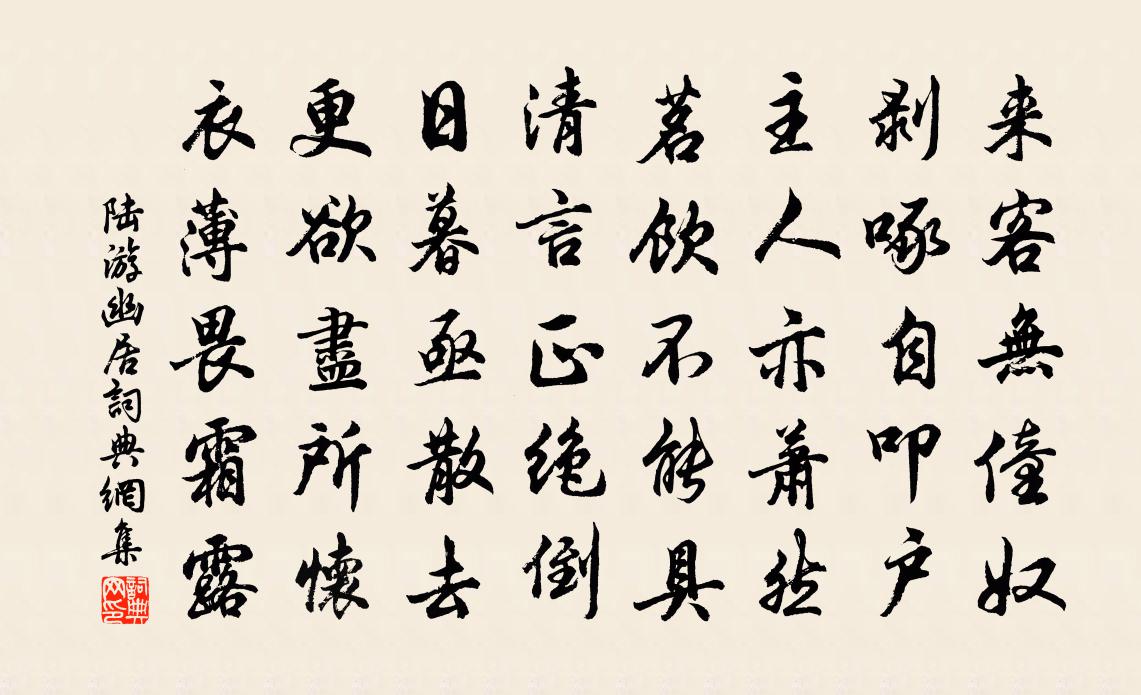 来客無僮奴
剥啄自叩户
主人亦蕭然
茗飲不能具
清言正絶倒
日暮亟散去
更欲盡所懷
衣薄畏霜露
陸游幽居詞典網集
詞典网印